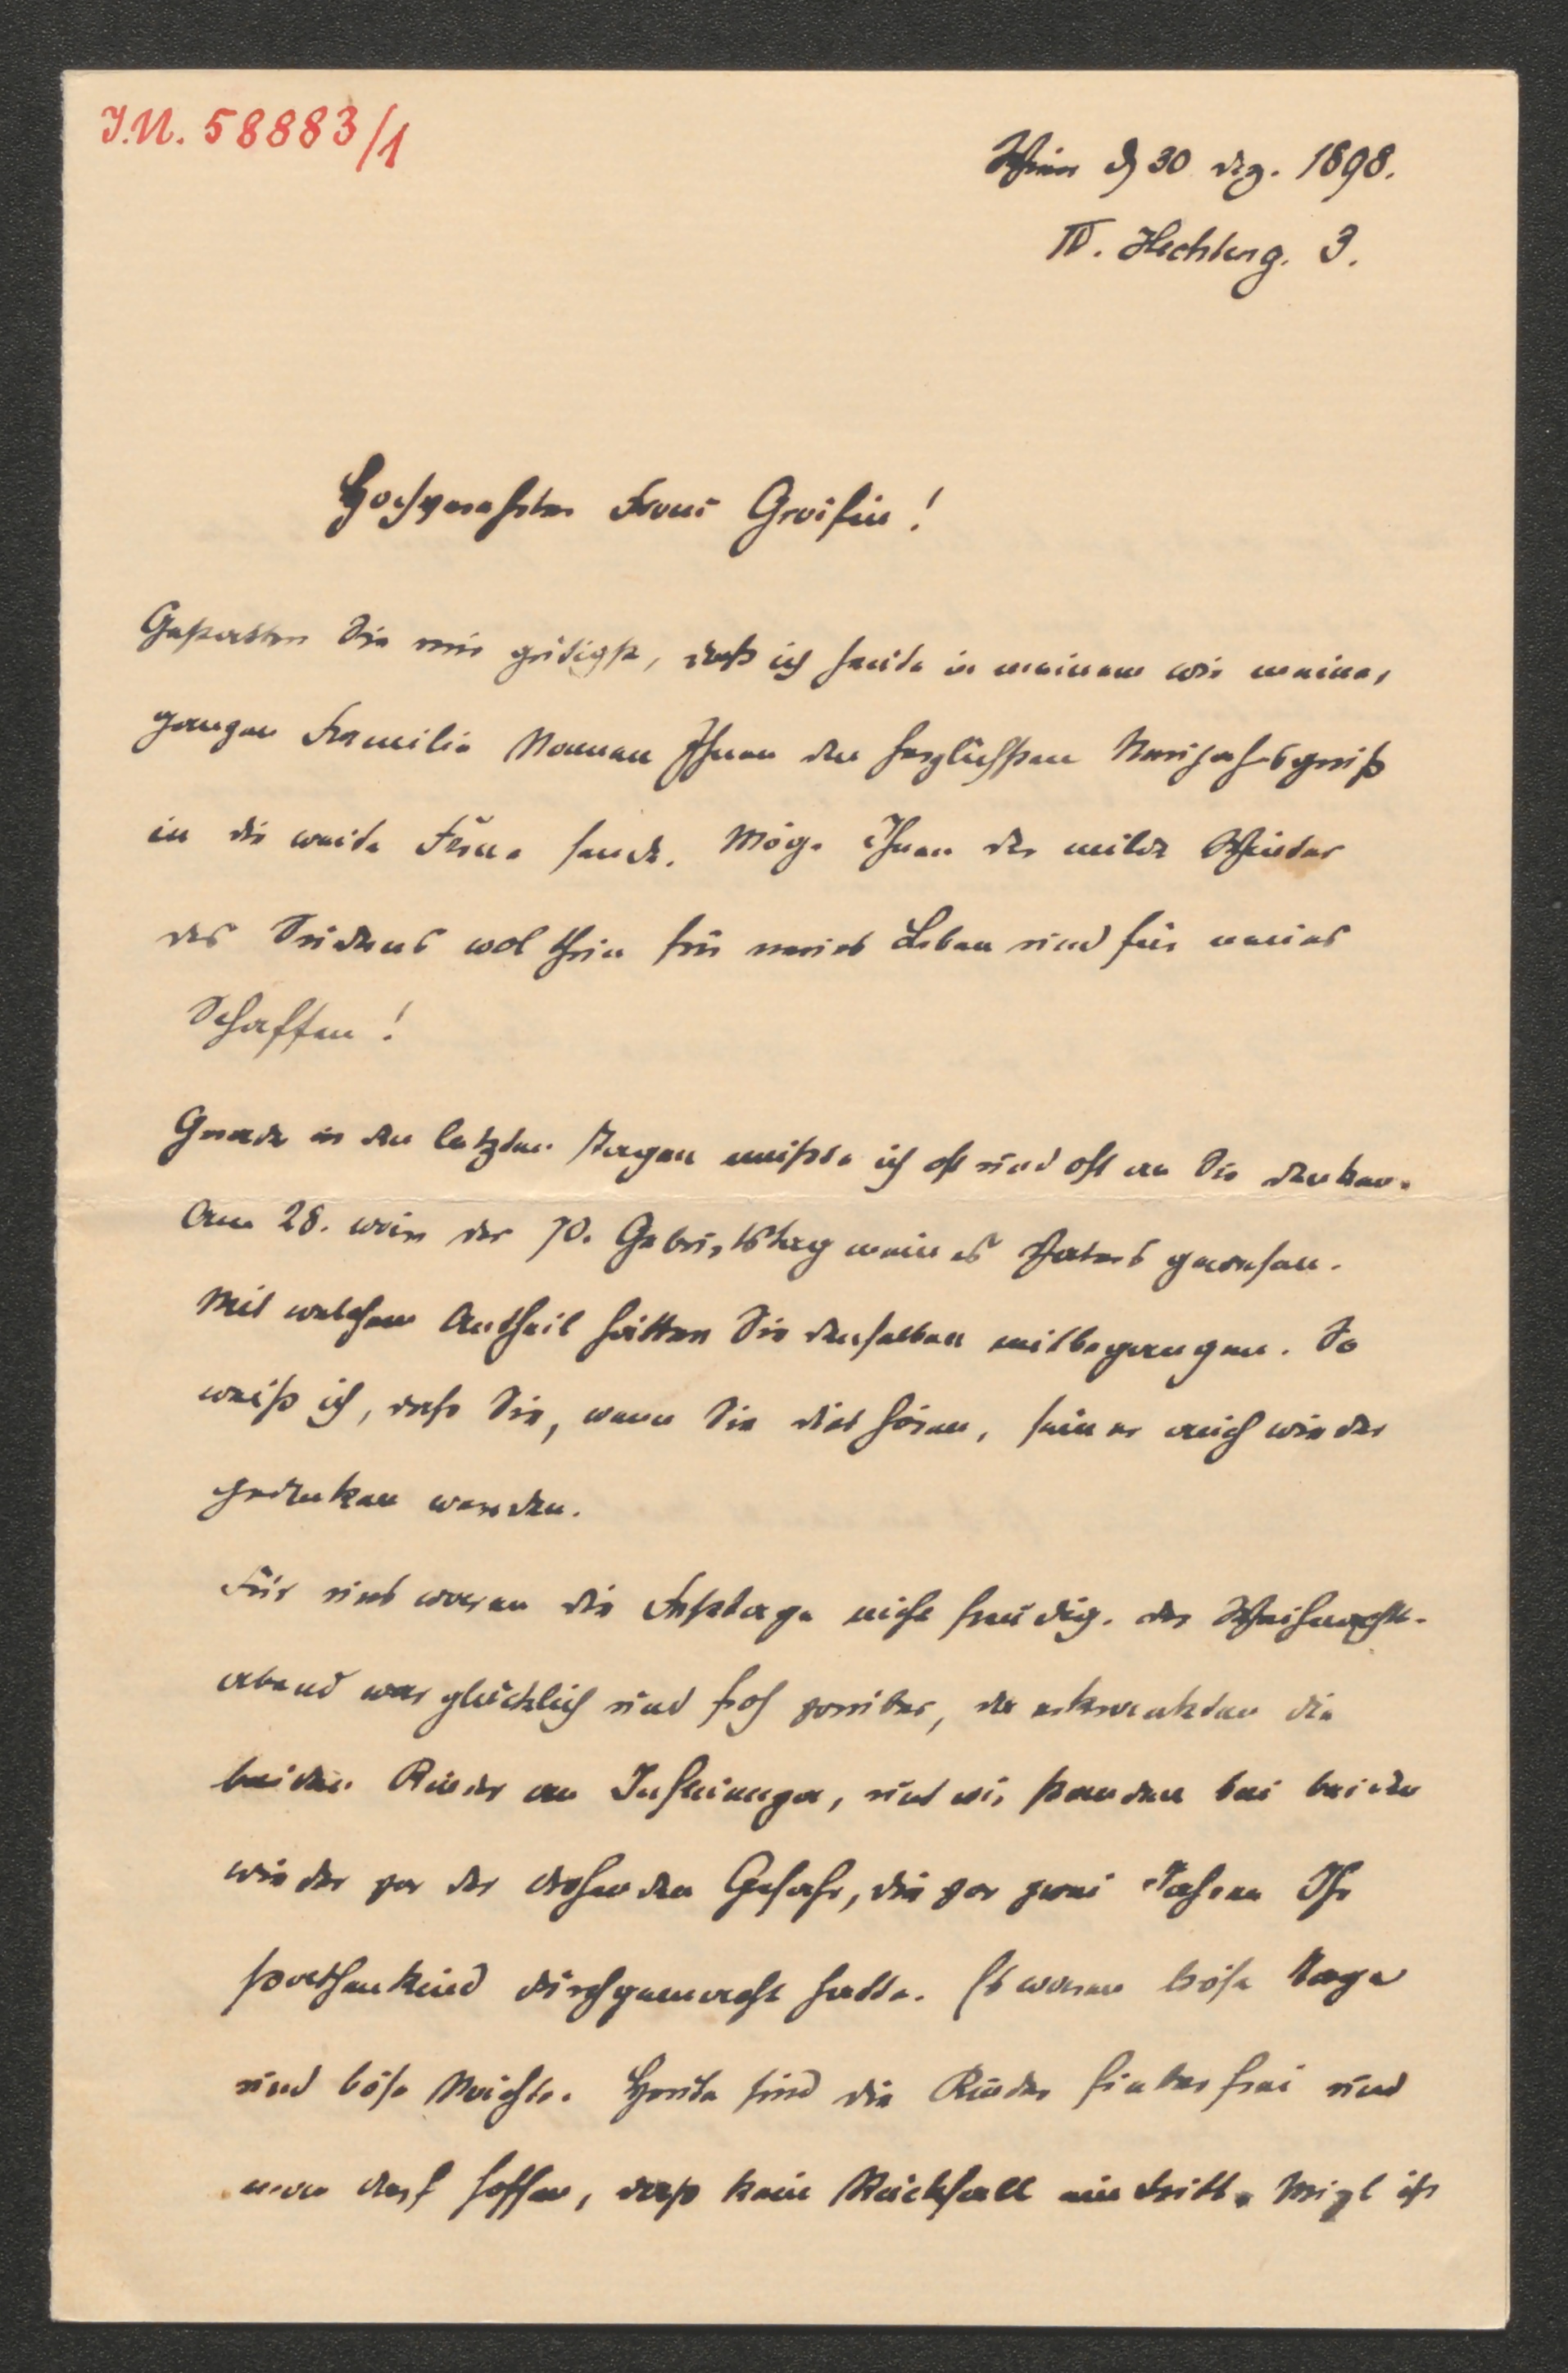 J.N. 58883/1
Wien d 30 Dez. 1898.
IV. Hechteng. 3.
Hochverehrte Frau Gräfin!
Gestatten Sie mir gütigst, daß ich heute in meinem wie meiner
ganzen Familie Namen Ihnen den herzlichsten Neujahrsgruß
in die weite Ferne sende. Möge Ihnen der milde Winter
des Südens wol thun für neues Leben und für neues
Schaffen!
Grade in den letzten Tagen mußte ich oft und oft an Sie denken.
Am 28. wär der 70. Geburtstag meines Vaters gewesen.
Mit welchem Antheil hätten Sie denselben mitbegangen. So
weiß ich, daß Sie, wenn Sie dies hören, seiner auch wieder
gedenken werden.
Für uns waren die Festtage nicht freudig. Der Weihnachts-
abend war glücklich und froh vorüber, da erkrankten die
beiden Kinder an Influenza, und wir standen bei beiden
wieder vor der drohenden Gefahr, die vor zwei Jahren Ihr
Pathenkind durchgemacht hatte. Es waren böse Tage
und böse Nächte. Heute sind die Kinder fieberfrei und
man darf hoffen, daß kein Rückfall eintritt. ich